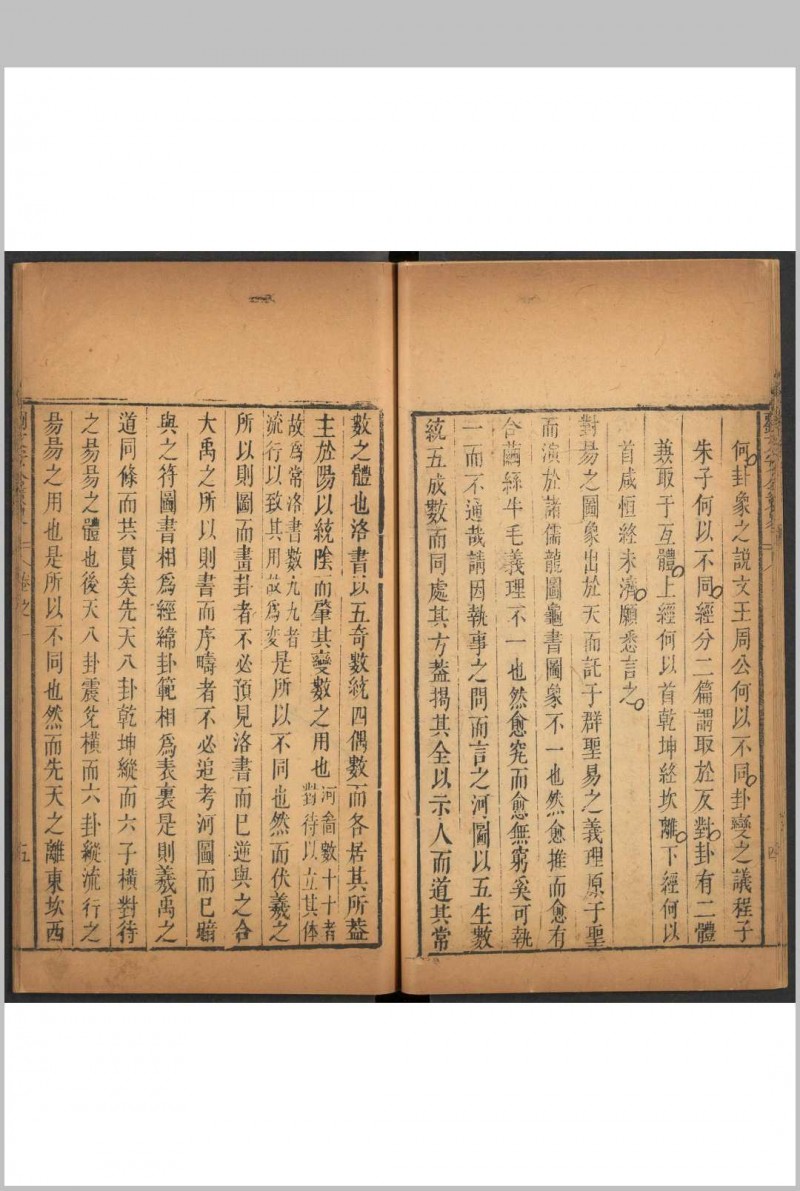 何卦象之說文王周公何以不同卦變之議程子
朱子何以不同經分二篇謂取於反對卦有二體
兼取于互體上經何以首乾坤終坎離下經何以
首咸恒終未濟願悉言之
對易之圖象出於天而託于群聖易之義理原于聖
而演於諸儒龍圖龜書圖象不一也然愈推而愈有
合繭絲牛毛義理不一也然愈究而愈無窮奚可執
一而不通哉請因執事之問而言之河圖以五生數
統五成數而同處其方蓋揭其全以示人而道其常
數之體也洛書以五奇數統四偶數而各居其所蓋
主於陽以統陰而肇其變數之用也河啚數十十者對待以立其体
故爲常洛書數九九者流行以致其用故爲変是所以不同也然而伏羲之
所以則圖而畫卦者不必預見洛書而巳逆與之合
大禹之所以則書而序疇者不必追考河圖而巳暗
與之符圖書相爲經緯卦範相爲表裏是則羲禹之
道同條而共貫矣先天八卦乾坤縱而六子橫對待
之易易之體也後天八卦震兌橫而六卦縱流行之
易易之用也是所以不同也然而先天之離東坎西
五